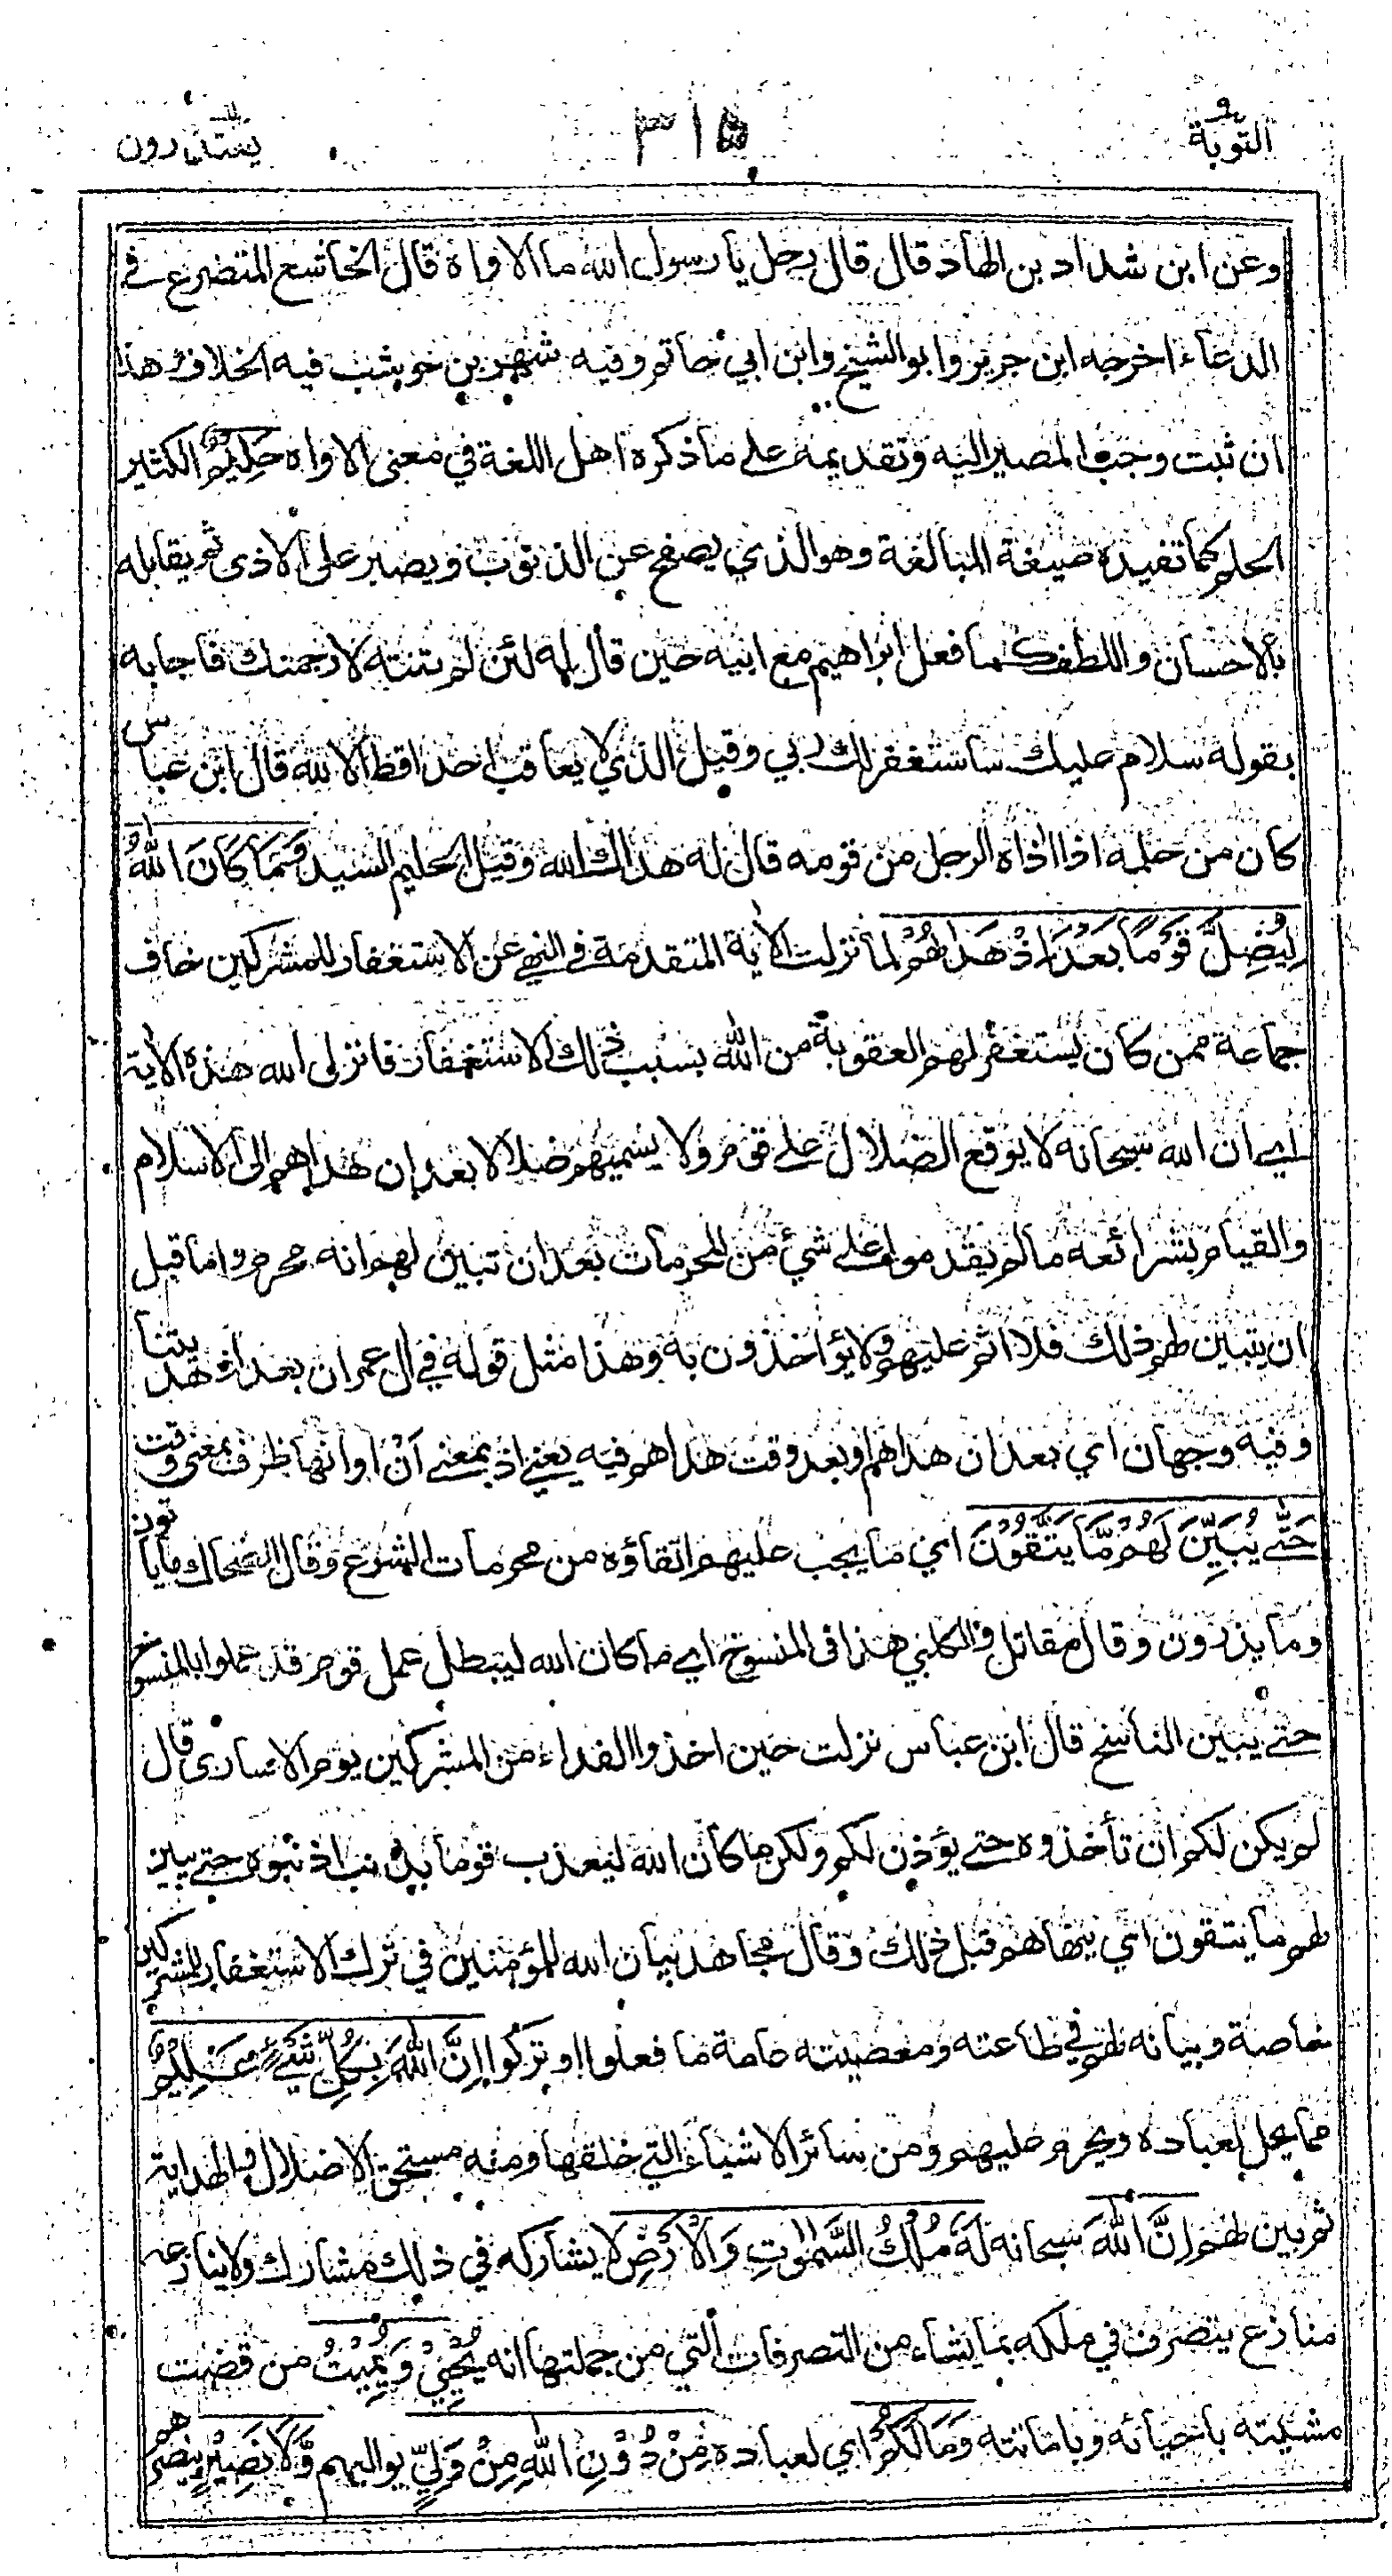 التوبة ٣١٥ يعتذرون
وعن ابن شداد بن الهاد قال قال رجل يا رسول الله ما الاواه قال الخاشع المتضرع في
الدعاء اخرجه ابن جرير وابو الشيخ وابن ابي حاتم وفيه شهر بن حوشب فيه الخلاف هذا
ان ثبت وجب المصير اليه وتقديمه على ما ذكره اهل اللغة في معنى الاواه حَلِيْمٌ الكثير
الحلم كما تفيده صيغة المبالغة وهو الذي يصفح عن الذنوب ويصبر على الاذى ثم يقابله
بالاحسان واللطف كما فعل ابراهيم مع ابيه حين قال له لئن لم تنته لارجمنك فاجابه
بقوله سلام عليك ساستغفر لك ربي وقيل الذي لا يعاقب احدا قط الا لله قال ابن عباس
كان من حلمه اذا اذاه الرجل من قومه قال له هداك الله وقيل الحليم السيد وَمَا كَانَ اللّٰهُ
لِيُضِلَّ قَوْمًا بَعْدَ اِذْ هَدٰهُمْ لما نزلت الاية المتقدمة في النهي عن الاستغفار للمشركين خاف
جماعة ممن كان يستغفر لهم العقوبة من الله بسبب ذلك الاستغفار فانزل الله هذه الاية
اي ان الله سبحانه لا يوقع الضلال على قوم ولا يسميهم ضلالا بعد ان هداهم الى الاسلام
والقيام بشرائعه ما لم يقدموا على شيء من المحرمات بعد ان تبين لهم انه محرم واما قبل
ان يتبين لهم ذلك فلا اثم عليهم ولا يؤاخذون به وهذا مثل قوله في ال عمران بعد اذ هديتنا
وفيه وجهان اي بعد ان هداهم او بعد وقت هداهم فيه يعني اذ بمعنى اَنْ او انها ظرف بمعنى وقت
حَتّٰى يُبَيِّنَ لَهُمْ مَّا يَتَّقُوْنَ اي ما يجب عليهم اتقاؤه من محرمات الشرع وقال الضحاك ما ياتون
وما يذرون وقال مقاتل والكلبي هذا في المنسوخ اي ما كان الله ليبطل عمل قوم قد عملوا بالمنسوخ
حتى يبين الناسخ قال ابن عباس نزلت حين اخذوا الفداء من المشركين يوم الاسارى قال
لم يكن لكم ان تأخذوه حتى يؤذن لكم ولكن ما كان الله ليعذب قوما بذنب اذنبوه حتى يبين
لهم ما يتقون اي ينهاهم قبل ذلك وقال مجاهد بيان الله للمؤمنين في ترك الاستغفار للمشركين
خاصة وبيانه لهم في طاعته ومعصيته عامة ما فعلوا او تركوا اِنَّ اللّٰهَ بِكُلِّ شَيْءٍ عَلِيْمٌ
مما يحل لعباده ويحرم عليهم ومن سائر الاشياء التي خلقها ومنه مستحق الاضلال والهداية
ثم بين لهم اِنَّ اللّٰهَ سبحانه لَهٗ مُلْكُ السَّمٰوٰتِ وَالْاَرْضِ لا يشاركه في ذلك مشارك ولا ينازعه
منازع يتصرف في ملكه بما يشاء من التصرفات التي من جملتها انه يُحْيِيْ وَيُمِيْتُ من قضت
مشيئته باحيائه وباماتته وَمَا لَكُمْ اي لعباده مِنْ دُوْنِ اللّٰهِ مِنْ وَّلِيٍّ يواليهم وَّلَا نَصِيْرٍ ينصرهم